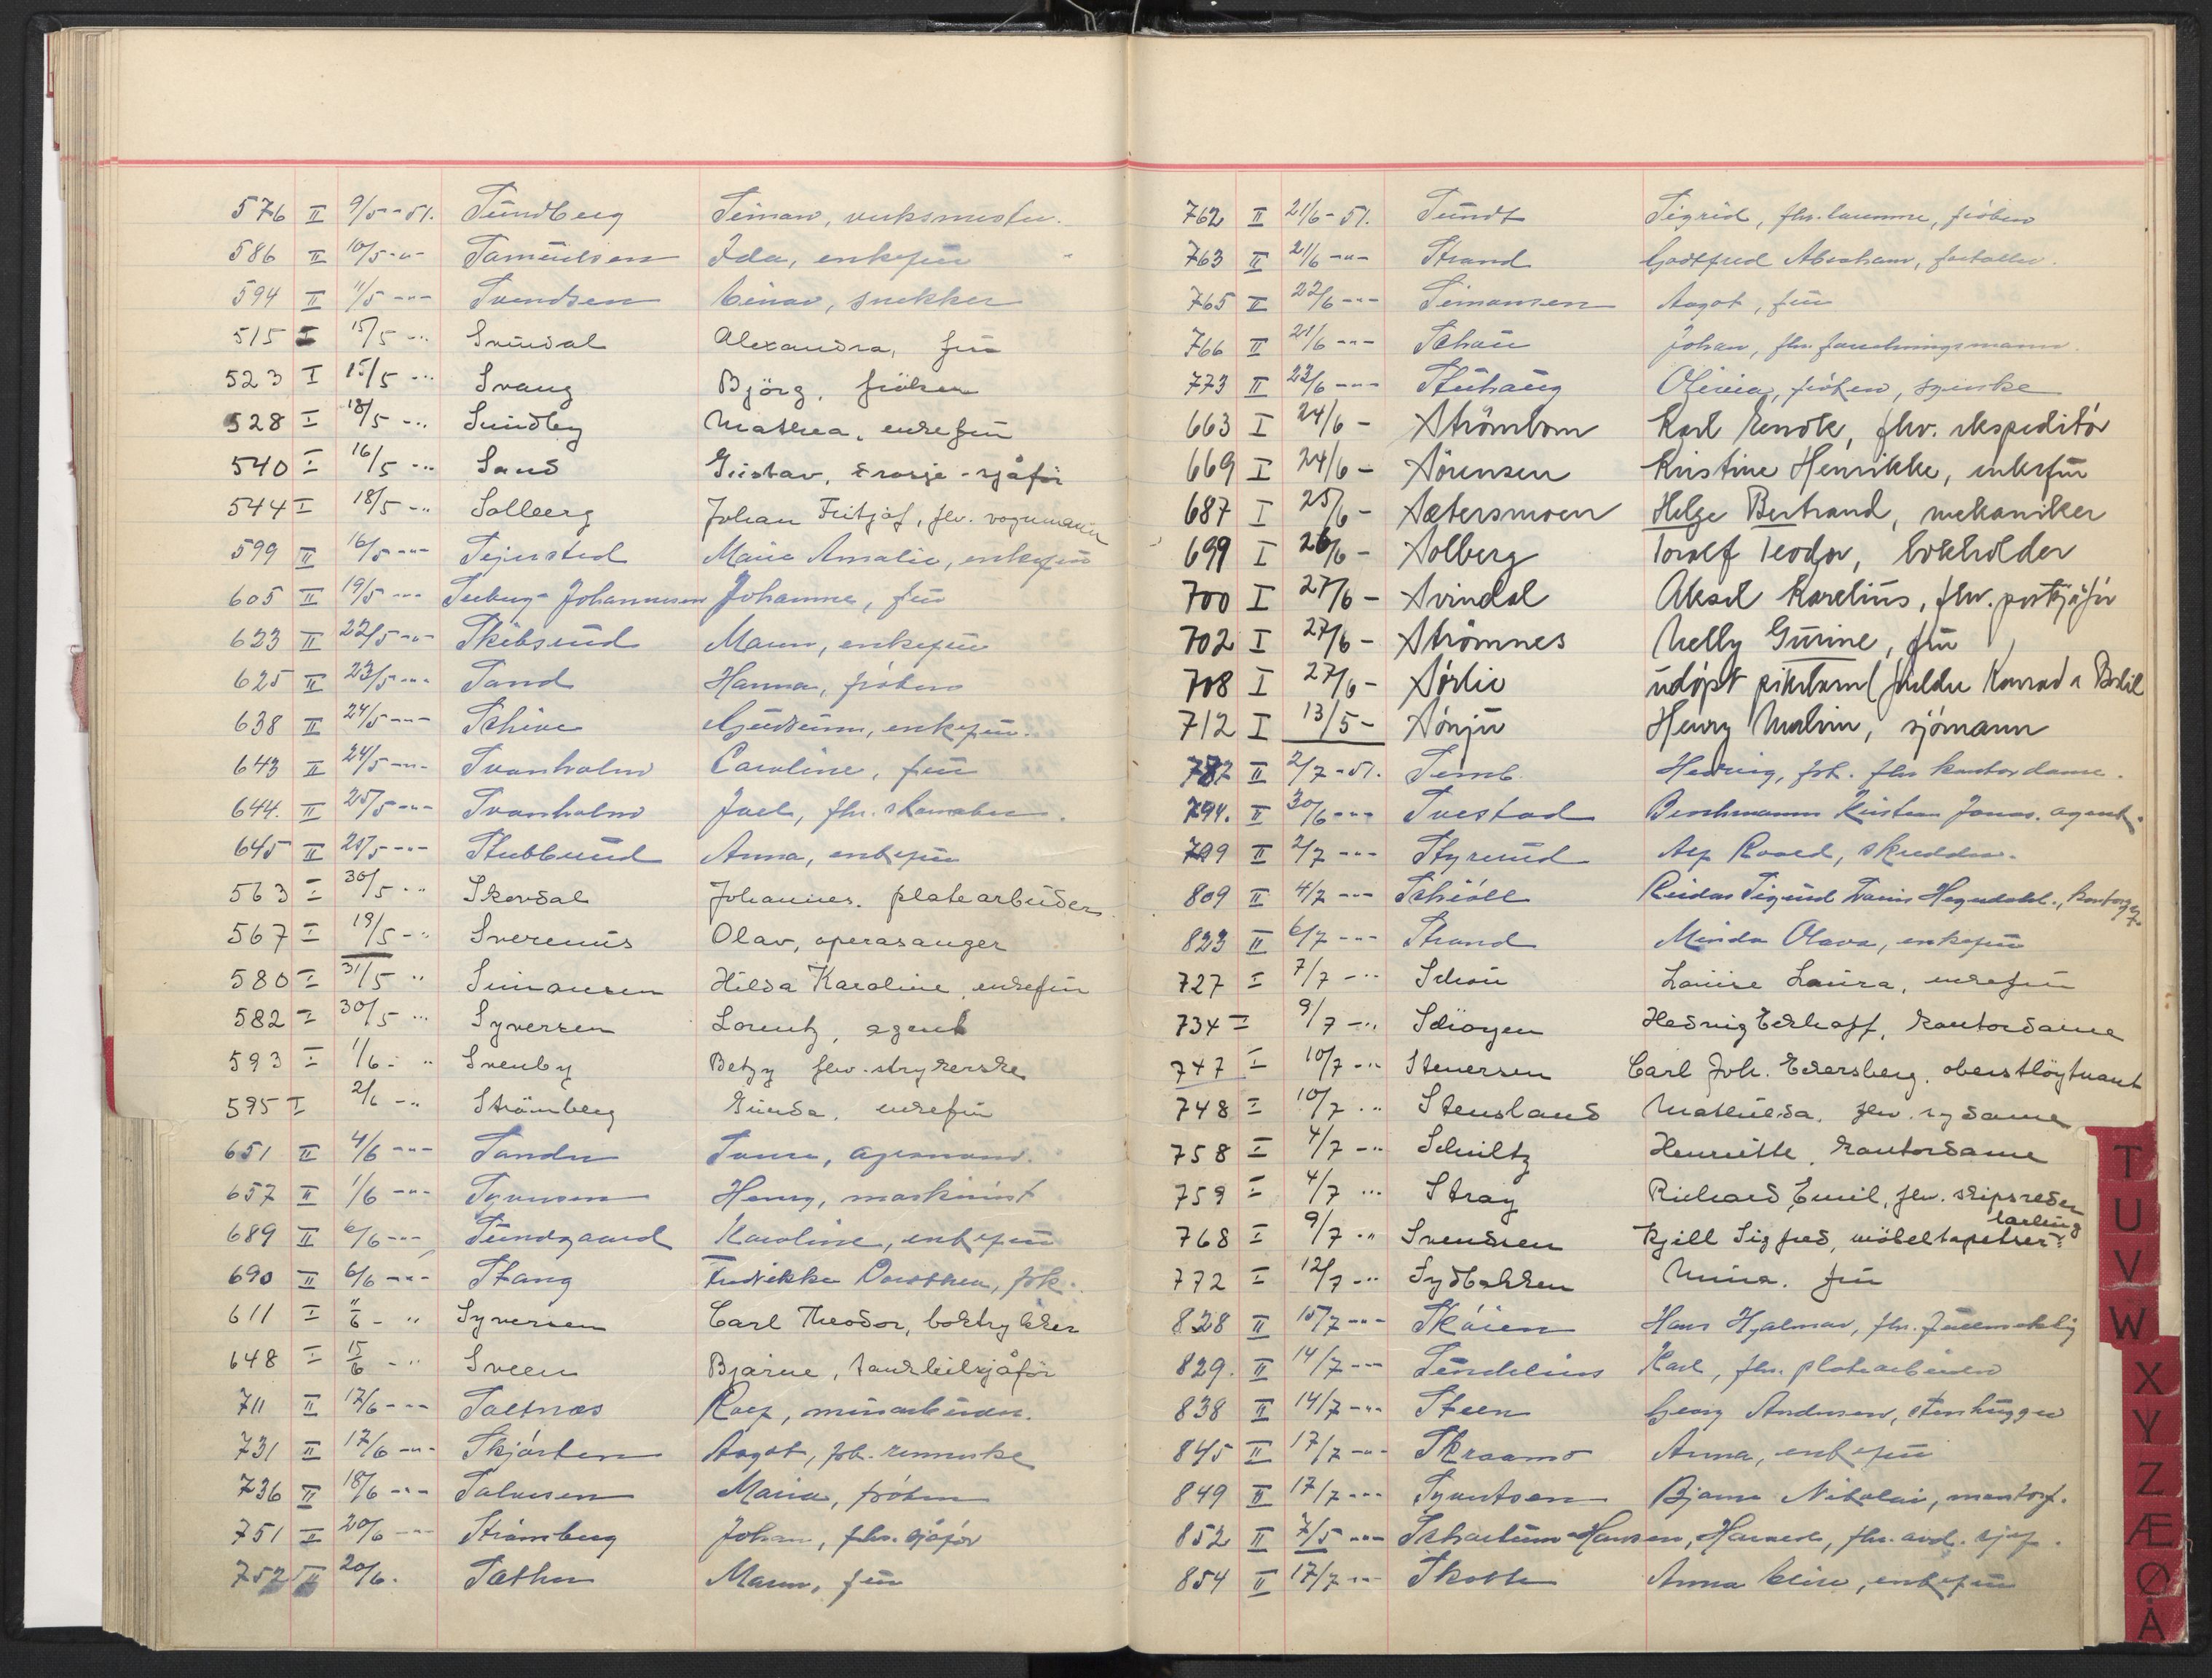 576 II 9/5 - 51. Sundberg Simon, verksmester.
586 II 10/5 -"- Samuelsen Ida, enkefru
594 II 11/5 -"- Svendsen Einar, snekker
515 I 15/5 -"- Svindal Alexandra, fru
523 I 15/5 -"- Svang Björg, fröken
528 I 18/5 -"- Sundby Mathea, enkefru
540 I 16/5 -"- Sand Gustav, drosje-sjåför
544 I 18/5 -"- Solberg Johan Fritjof, fhv. vognmann
599 II 16/5 -"- Sejersted Marie Amalie, enkefru
605 II 19/5 -"- Seeberg-Johannesen Johanne, fru
623 II 22/5 -"- Skibsrud Maren, enkefru
625 II 23/5 -"- Sand Hanna, frøken
638 II 24/5 -"- Schive Gudrun, enkefru.
643 II 24/5 -"- Svanholm Caroline, fru
644. II 25/5 -"- Svanholm Joel, fhv.
645 II 25/5 -"- Stubberud Anna, enkefru
563 I 30/5 -"- Skovdal Johannes. platearbeider
567 I 19/5 -"- Severenus Olav, operasanger
580 I 31/5 " Simonsen Hilda Karoline, enkefru
582 I 30/5 -"- Syversen Lorentz, agent
593 I 1/6 - " Svenby Betzy fhv. strykerske
595 I 2/6 -" Strömberg Gunda, enkefru
651 II 4/6 -"- Sandu
657 II 1/6 -"- Syversen Henry, maskinist
689 II 6/6 -"- Sundgaard Karoline, enkefru
690 II 6/6 -"- Stang Fredrikke Dorothea, frk.
611 I 11/6 - " Syversen Carl Theodor, boktrykker
648 I 15/6 - " Sveen Bjarne, tankbilsjåför
711 II 12/6 -"- Saltnes Rolf, murarbeider.
731 II 17/6 -"- Skjørten Aagot, frk.
736 II 18/6 -"- Salvesen Maria, frøken
751 II 20/6 -"- Strømberg Johan, fhv. sjåfør
752 II 20/6. Sæther Maren, fru
762 II 21/6 - 51. Sundt Sigrid, fhv. lærerinne, frøken
763 II 21/6 -"- Strand Godtfred Abraham, forteller.
765 II 22/6 -"- Simonsen Aagot, fru
766 II 21/6 -"- Schau Johan, fhv. forretningsmann.
773 II 23/6 -"- Stuhaug Olivia, frøken, syerske
663 I 24/6 - Strömbom Karl Enok, fhv. ekspeditör
669 I 24/6 - Sörensen Kristine Henrikke, enkefru
687 I 25/6 - Sætersmoen Helge Bertrand, mekaniker
699 I 26/6 - Solberg Toralf Teodor, bokholder
700 I 27/6 - Svindal Aksel Karelius, fhv. postsjåfør
702 I 27/6 - Strömnes Nelly Gurine, fru
708 I 27/6 - Sörlie udøpt pikebarn (foreldre Konrad & Bodil
712 I 13/5 - Sönju Henry Malvin, sjömann
787 II 2/7 - 51. Semb Hedvig, frk. fhv kontordame.
794. II 30/6 -"- Svestad Brochmann Kristian Jonas. agent.
799 II 2/7 -"- Styrmud Alf Roald, skredder.
809 II 4/7 -"- Schiøll Reidar Sigurd Hegerdahl.,
823 II 6/7 -"- Strand Minda Olava, enkefru
727 I 7/7 -"- Schou Louise Laura, enkefru
734 I 9/7 -"- Schiogen Hedvig Eckhoff, kontordame
747 I 10/7 -"- Stenersen Carl Joh. Eckersberg, oberstlöytnant
748 I 10/7 -" Stensland Mathilda, fhv. sydame
758 I 4/7 -"- Schultz Henriette, kontordame
759 I 4/7 -"- Stray Richard Emil, fhv. skipsreder
768 I 9/7 -" Svendsen Kjell Sigfred, möbeltapetser= lærling
772 I 12/7 -"- Sydbakken Nina. fru
828 II 15/7 -"- Skøien Hans Hjalmar, fhv.
829. II 14/7 -"- Sundelius Karl, fhv. platearbeider
838 II 14/7 -"- Steen Georg Andersen, stenhugger
845 II 17/7 -"- Skraamo Anna, enkefru
849 II 17/7 -"- Syvertsen Bjarne Nikolai, montør.
852 II 7/5 -"- Schartum-Hansen, Harald, fhv. avd. sjef.
854 II 17/7 -"- Skotte Anna Elise, enkefru
T
U
V
W
X
Y
Z
Æ
Ø
Å